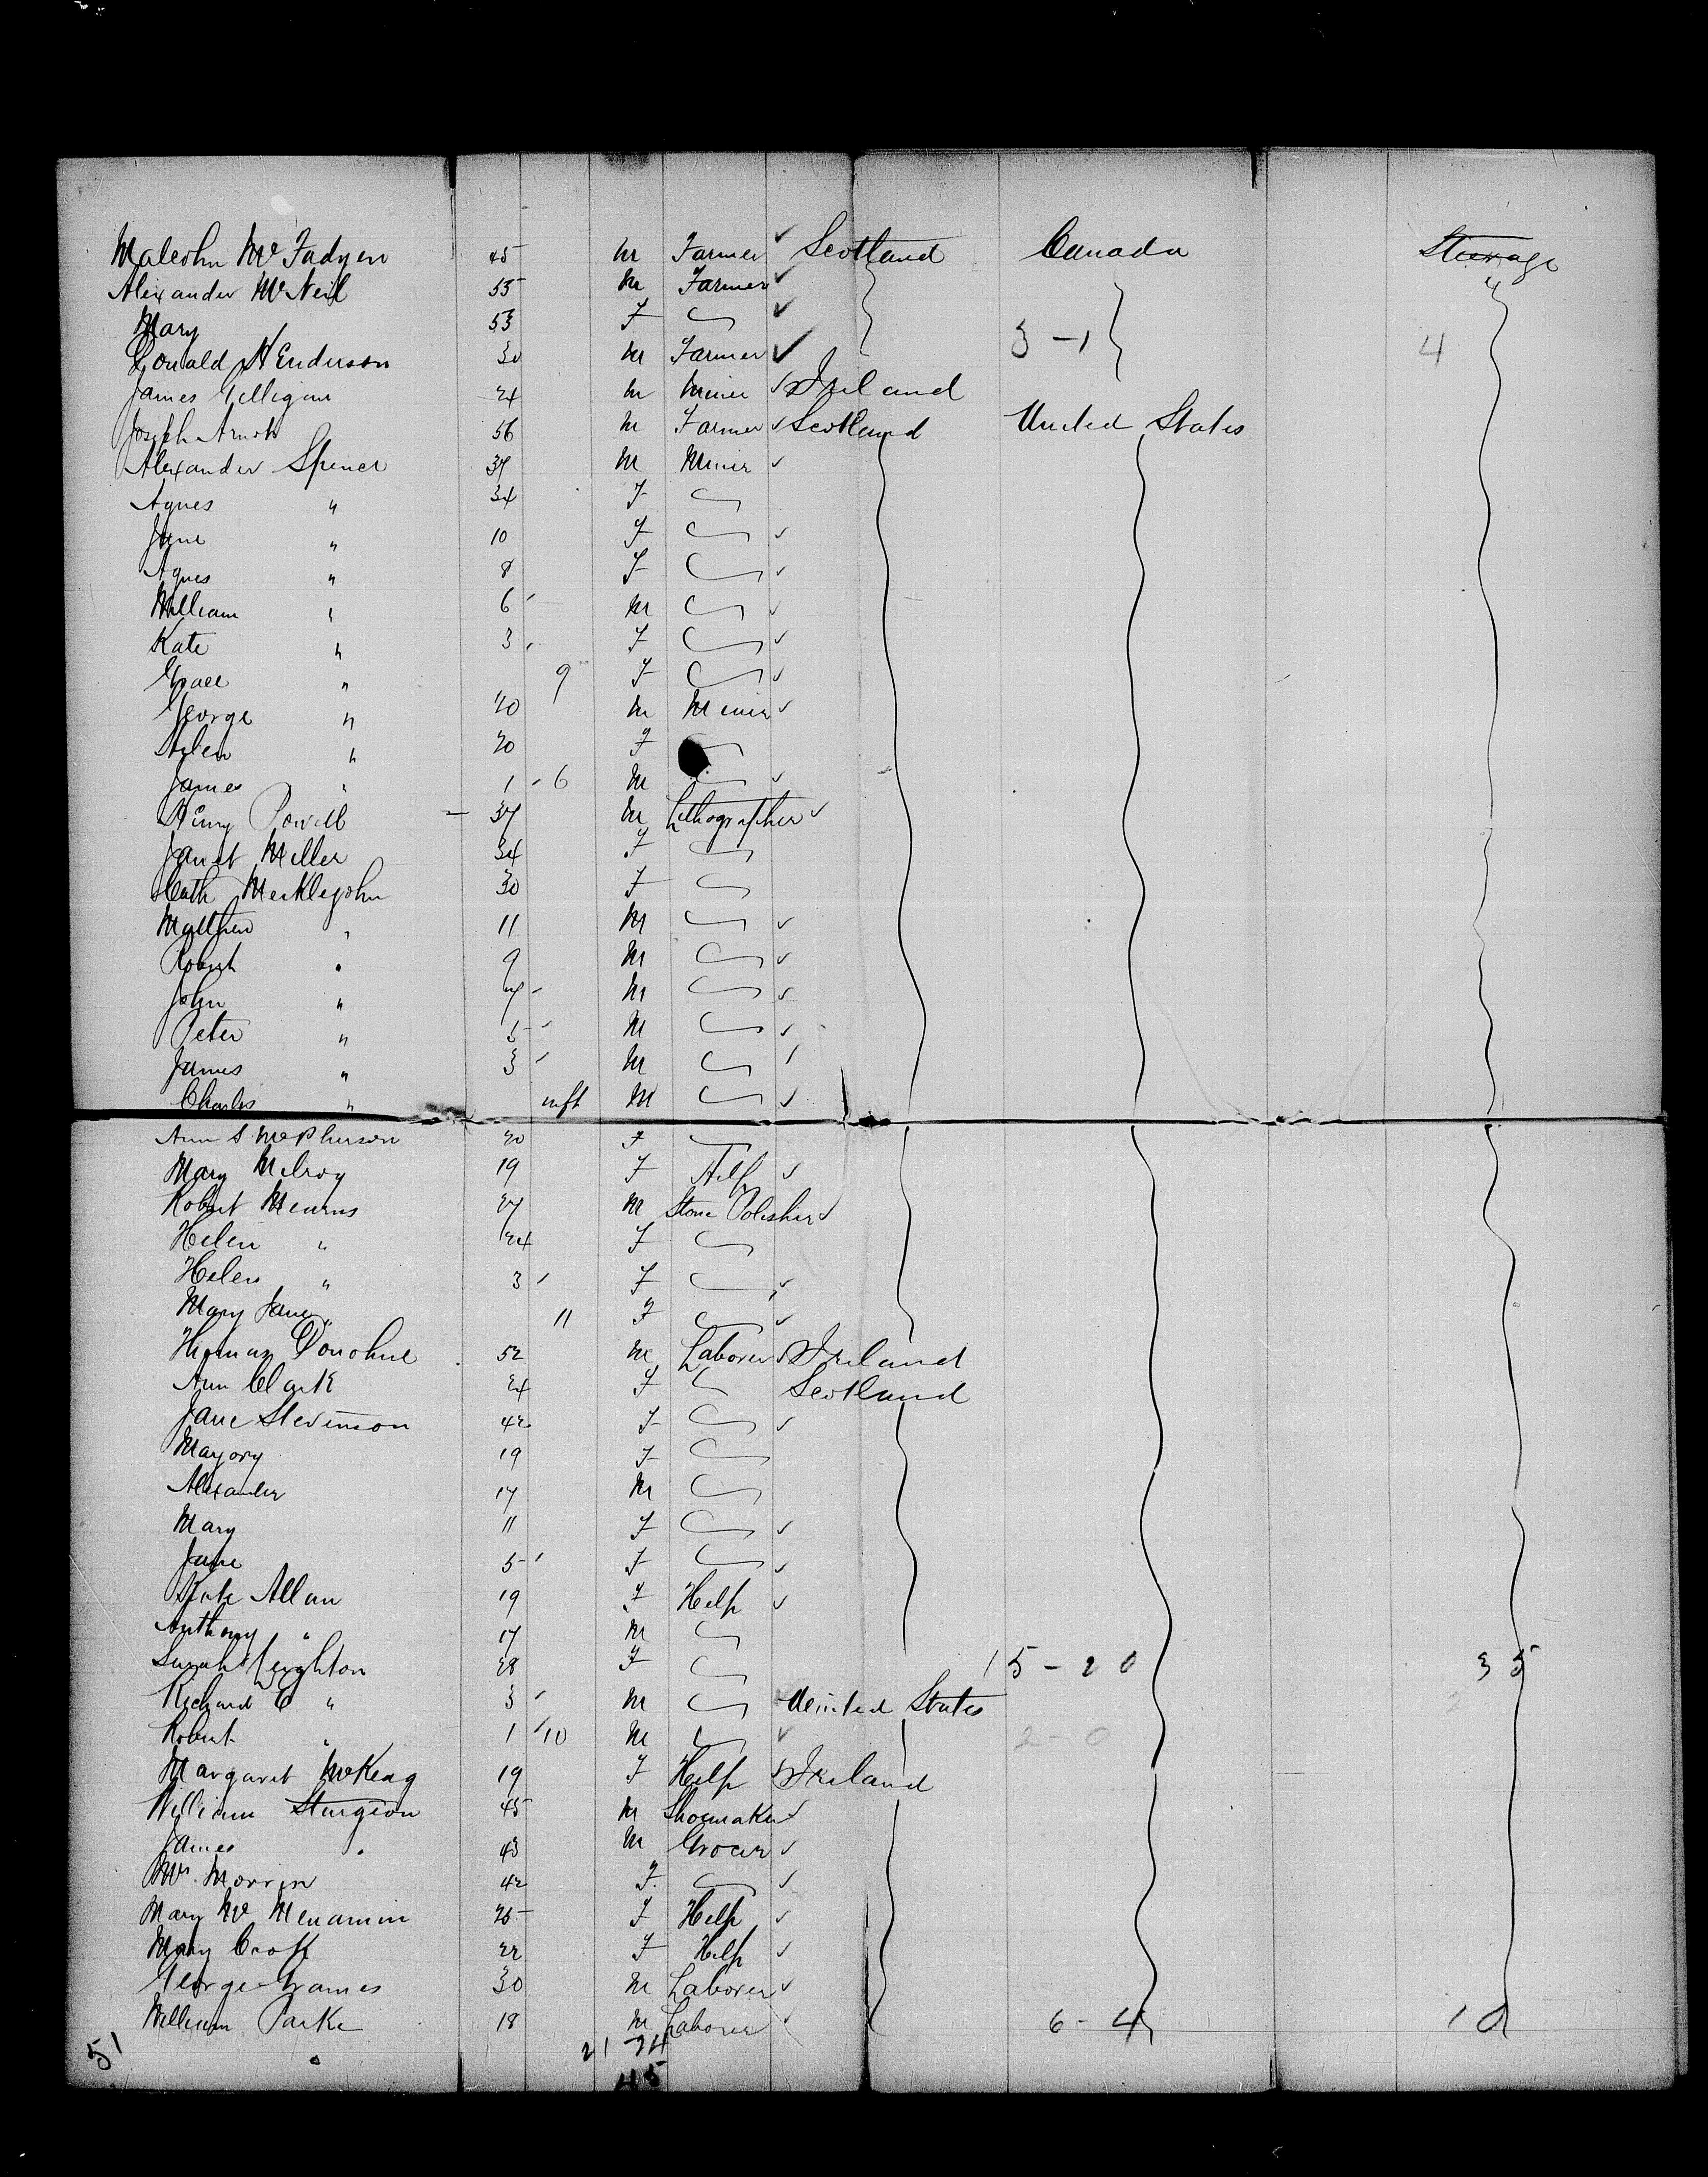 Malcohn Mc Fadyen 45 M Farmer ✓ Scotland Canada Steerage
Alexander McNeil 55 M Farmer ✓
Mary 53 F ✓
Donald HEnderson 30 M Farmer ✓ 3 - 1 4
James Gilligan 24 M Miner ✓ Ireland
Joseph Arnott 56 M Farmer ✓ Scotland United States
Alexander Spencer 37 M Miner ✓
Agnes " 34 F
Jane " 10 F ✓
Agnes " 8 F ✓
William " 6 M ✓
Kate " 3 F ✓
Grace " 9 F ✓
George " 20 M Miner ✓
Helen " 20 F
James " 1 - 6 M ✓
Henry Powell 37 M Lithographer ✓
Janet Miller 34 F
Cath Meiklejohn 30 F
Matthew " 11 M ✓
Robert " 9 M ✓
John " 7 M ✓
Peter " 5 M ✓
James " 3 M
Charles " inft M ✓
Ann S McPherson 20 F
Mary Milroy 19 F Help ✓
Robert Mearns 27 M Stone Polisher ✓
Helen " 24 F
Helen " 3 F ✓
Mary Jane " 11 F ✓
Donohue 52 M Laborer ✓ Ireland
Ann Clark 24 F Scotland
Jane Stevenson 42 F ✓
Mayory 19 F
Alexander 17 M
Mary 11 F ✓
Jane 5 F ✓
Kate Allan 19 F Help ✓
Anthony " 17 M
Sarah Leighton 28 F 15 - 20 35
Richard C " 3 M United States 2
Robert " 1 10 M ✓ 2 - 0
Margaret McKeag 19 F Help ✓ Ireland
William Sturgeon 45 M Shoemaker ✓
James " 43 M Grocer ✓
Mrs Morrin 42 F ✓
Mary Mc Menamin 25 F Help ✓
Mary Croft 22 F Help ✓
George Grames 30 M Laborer ✓
William Parke 18 M Laborer ✓ 6 - 4 10
51 21 - 24
45